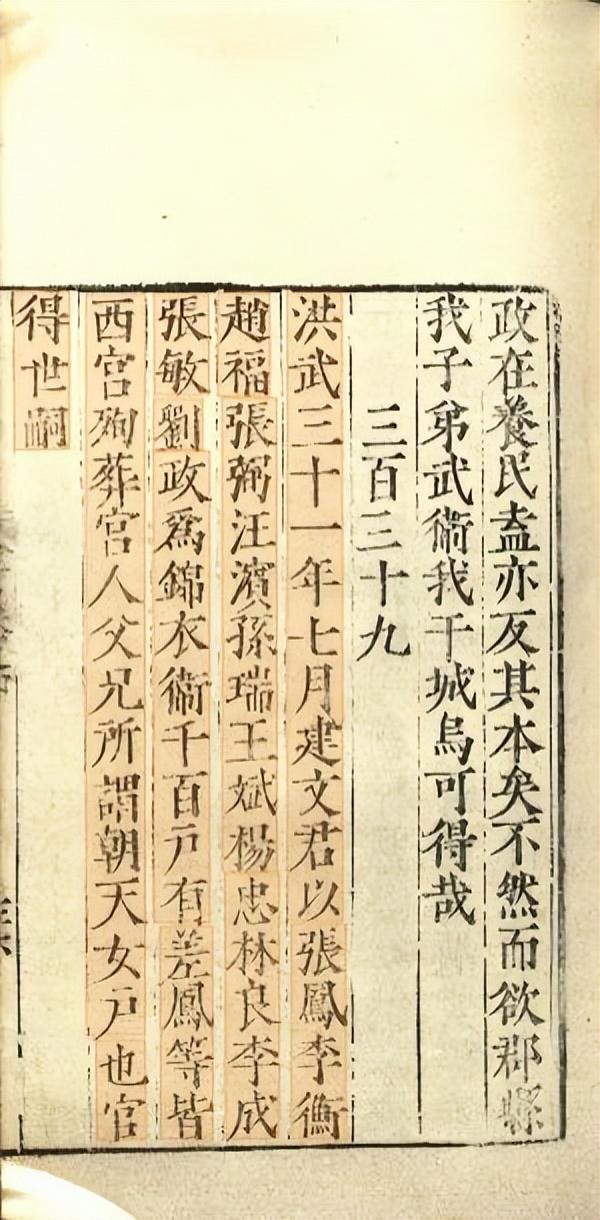 政在養民盍亦反其本矣不然而欲郡縣
我子弟武衛我干城烏可得哉
三百三十九
洪武三十一年七月建文君以張鳳李衡
趙福張弼汪濱孫瑞王斌楊忠林良李成
張敏劉政爲錦衣衛千百戶有差鳳等皆
西宮殉葬宮人父兄所謂朝天女戶也官
得世嗣